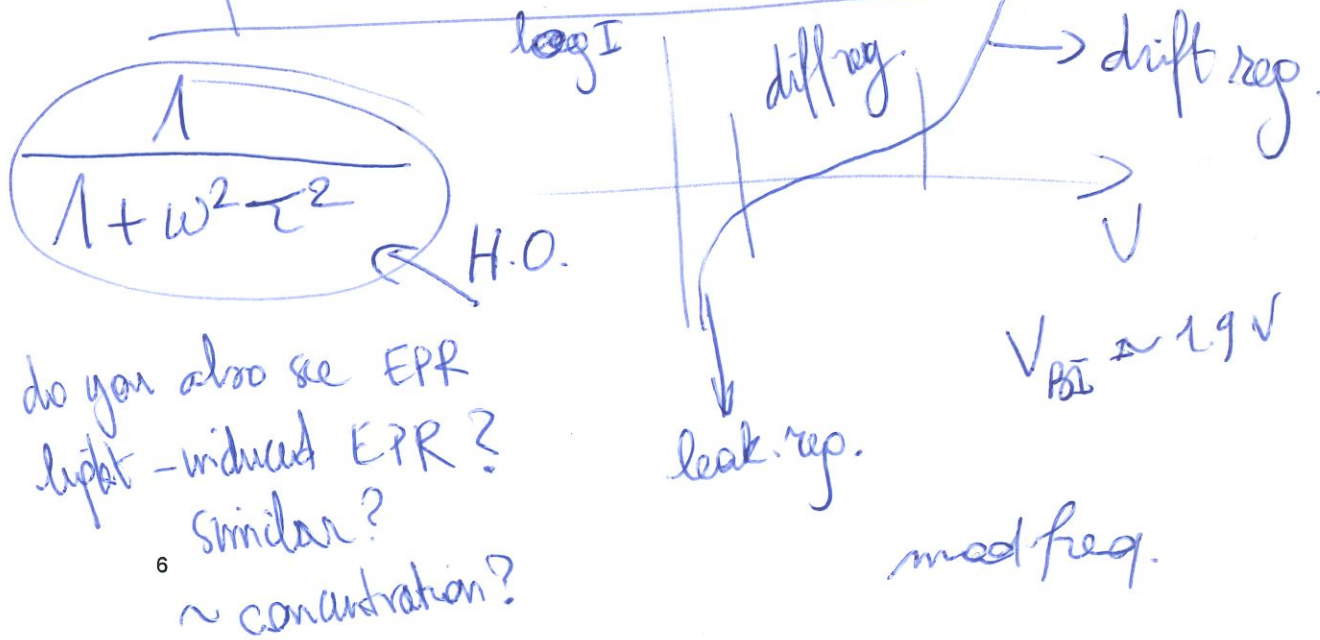 log I
diff reg.
drift reg.
1
1 + ω² τ²
H.O.
V
V_BI ~ 1.9 V
do you also see EPR
light-induced EPR?
similar?
~ concentration?
leak. reg.
mod freq.
6